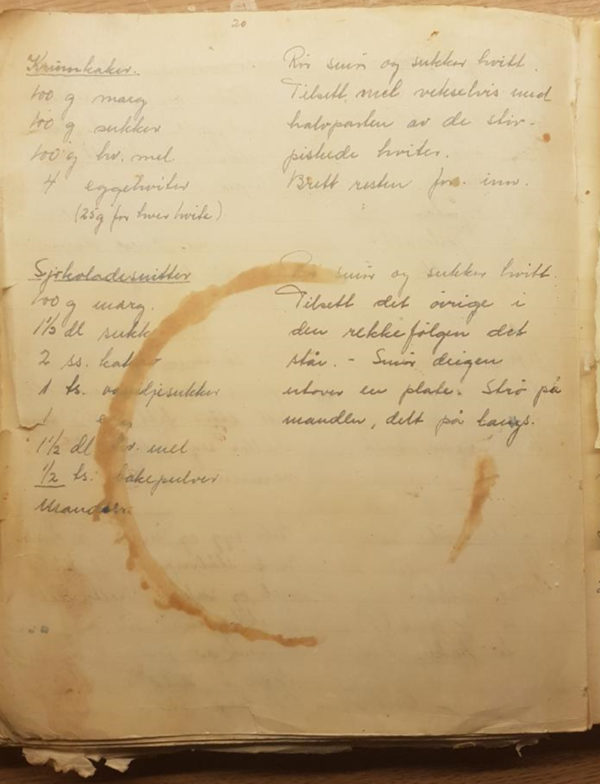 20
Krumkaker.
100 g marg
100 g sukker
100 g hv. mel
4 eggehviter
(25g for hver hvite)
Rør smør og sukker hvitt.
Tilsett mel vekselvis med
halvparten av de stiv-
piskede hviter.
Brett resten for. inn.
Sjokoladesnitter
100 g marg.
1½ dl sukk
2 ss. kakao
1 ts. vaniljesukker
1 egg
1½ dl hv. mel
½ ts. bakepulver
Mandler.
Rør smør og sukker hvitt.
Tilsett det øvrige i
den rekkefølgen det
står. - Smør deigen
utover en plate. Strø på
mandler, delt på langs.